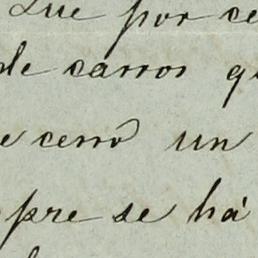 Que por ce
de carros q
e cerró un
pre se há